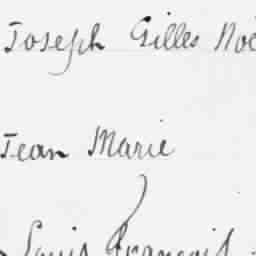 Joseph Gilles Noë
Jean Marie
Louis François